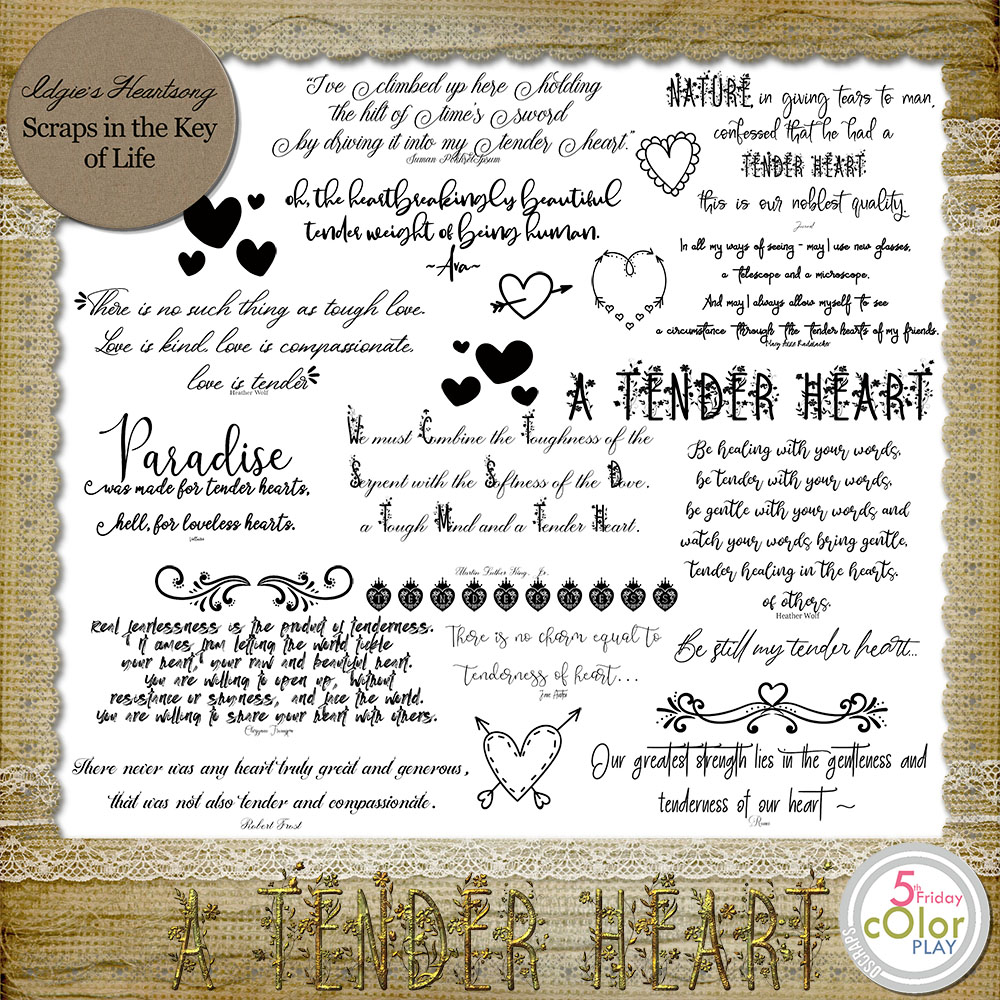 Idgie's Heartsong
Scraps in the Key
of Life
"I've Climbed up here Holding
the hilt of Time's Sword
By driving it into my Tender Heart."
Suman
Oh, the heartbreakingly beautiful
tender weight of being human.
~Ava~
NATURE, in giving tears to man,
confessed that he had a
TENDER HEART.
this is our noblest quality.
Juvenal
In all my ways of seeing - may I use new glasses,
a telescope and a microscope.
And may I always allow myself to see
a circumstance through the tender hearts of my friends.
Mary Anne Radmacher
"There is no such thing as tough love.
Love is kind, love is compassionate,
love is tender"
Heather Wolf
A TENDER HEART
Paradise
was made for tender hearts,
hell, for loveless hearts.
Voltaire
We must Combine the Toughness of the
Serpent with the Softness of the Dove.
a Tough Mind and a Tender Heart.
Martin Luther King, Jr.
Be healing with your words,
be tender with your words,
be gentle with your words and
watch your words bring gentle,
tender healing in the hearts,
of others.
Heather Wolf
TENDERNESS
Real fearlessness is the product of tenderness.
It comes from letting the world tickle
your heart, your raw and beautiful heart.
You are willing to open up, without
resistance or shyness, and face the world.
You are willing to share your heart with others.
Chögyam Trungpa
There is no charm equal to
tenderness of heart...
Jane Austen
Be still my tender heart...
There never was any heart truly great and generous,
that was not also tender and compassionate.
Robert Frost
Our greatest strength lies in the gentleness and
tenderness of our heart ~
Rumi
A TENDER HEART
5th Friday
cOlor
PLAY
OSCRAPS